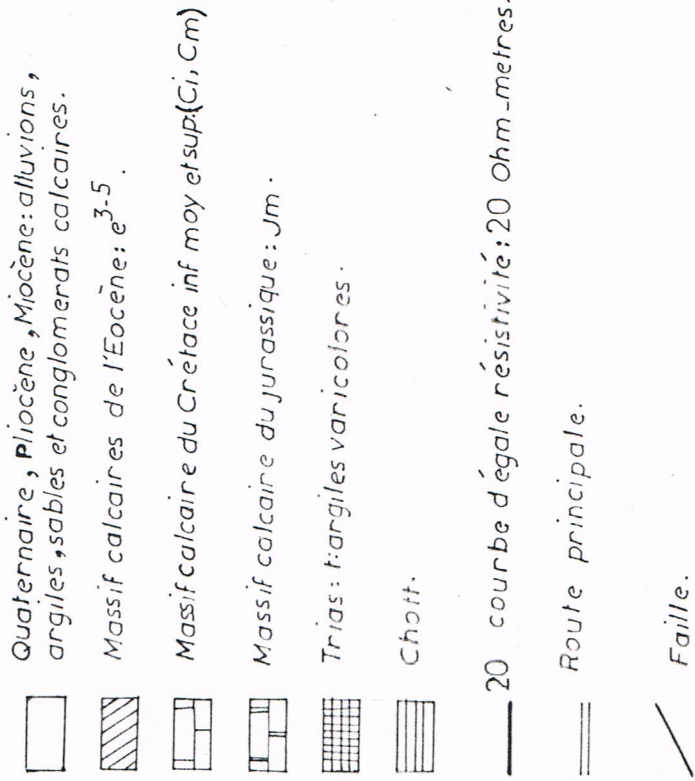 Quaternaire, Pliocène, Miocène: alluvions,
argiles, sables et conglomerats calcaires.
Massif calcaires de l'Eocène: e3-5.
Massif calcaire du Crétace inf moy et sup:(Ci, Cm)
Massif calcaire du jurassique: Jm.
Trias: t: argiles varicolores.
Chott.
20 courbe d'égale résistivité: 20 Ohm-metres.
Route principale.
Faille.